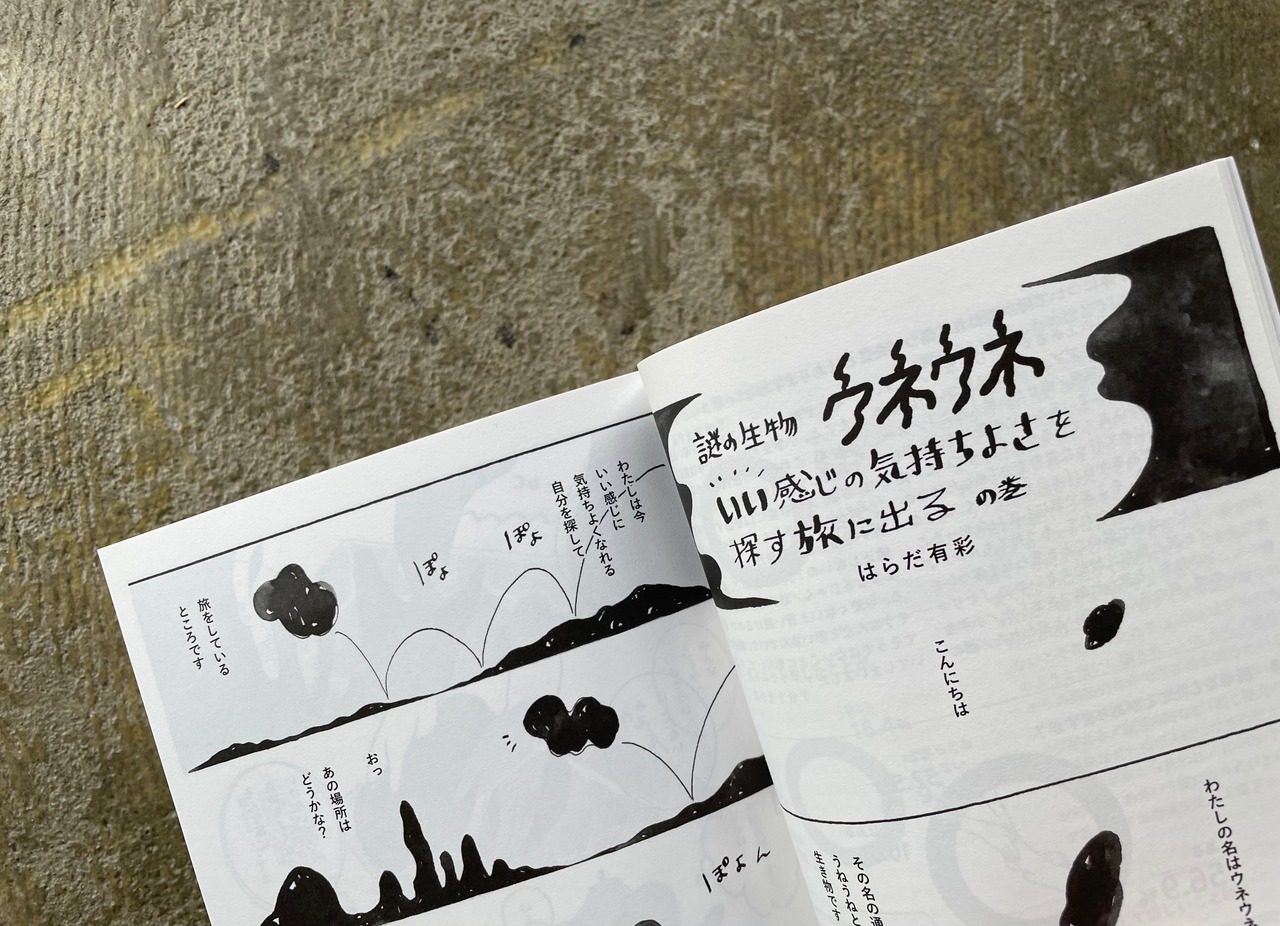 謎の生物 ウネウネ
いい感じの気持ちよさを
探す旅に出る の巻
はらだ有彩
こんにちは
わたしの名はウネウネ
その名の通
うねうねと
生き物です
わたしは今
いい感じに
気持ちよくなれる
自分を探して
ぽよ
ぽよ
旅をしている
ところです
おっ
あの場所は
どうかな?
ぽよん